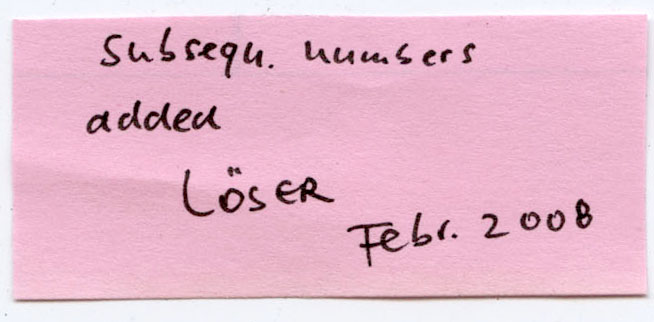 Subsequ. numbers
added
LÖSER
Febr. 2008